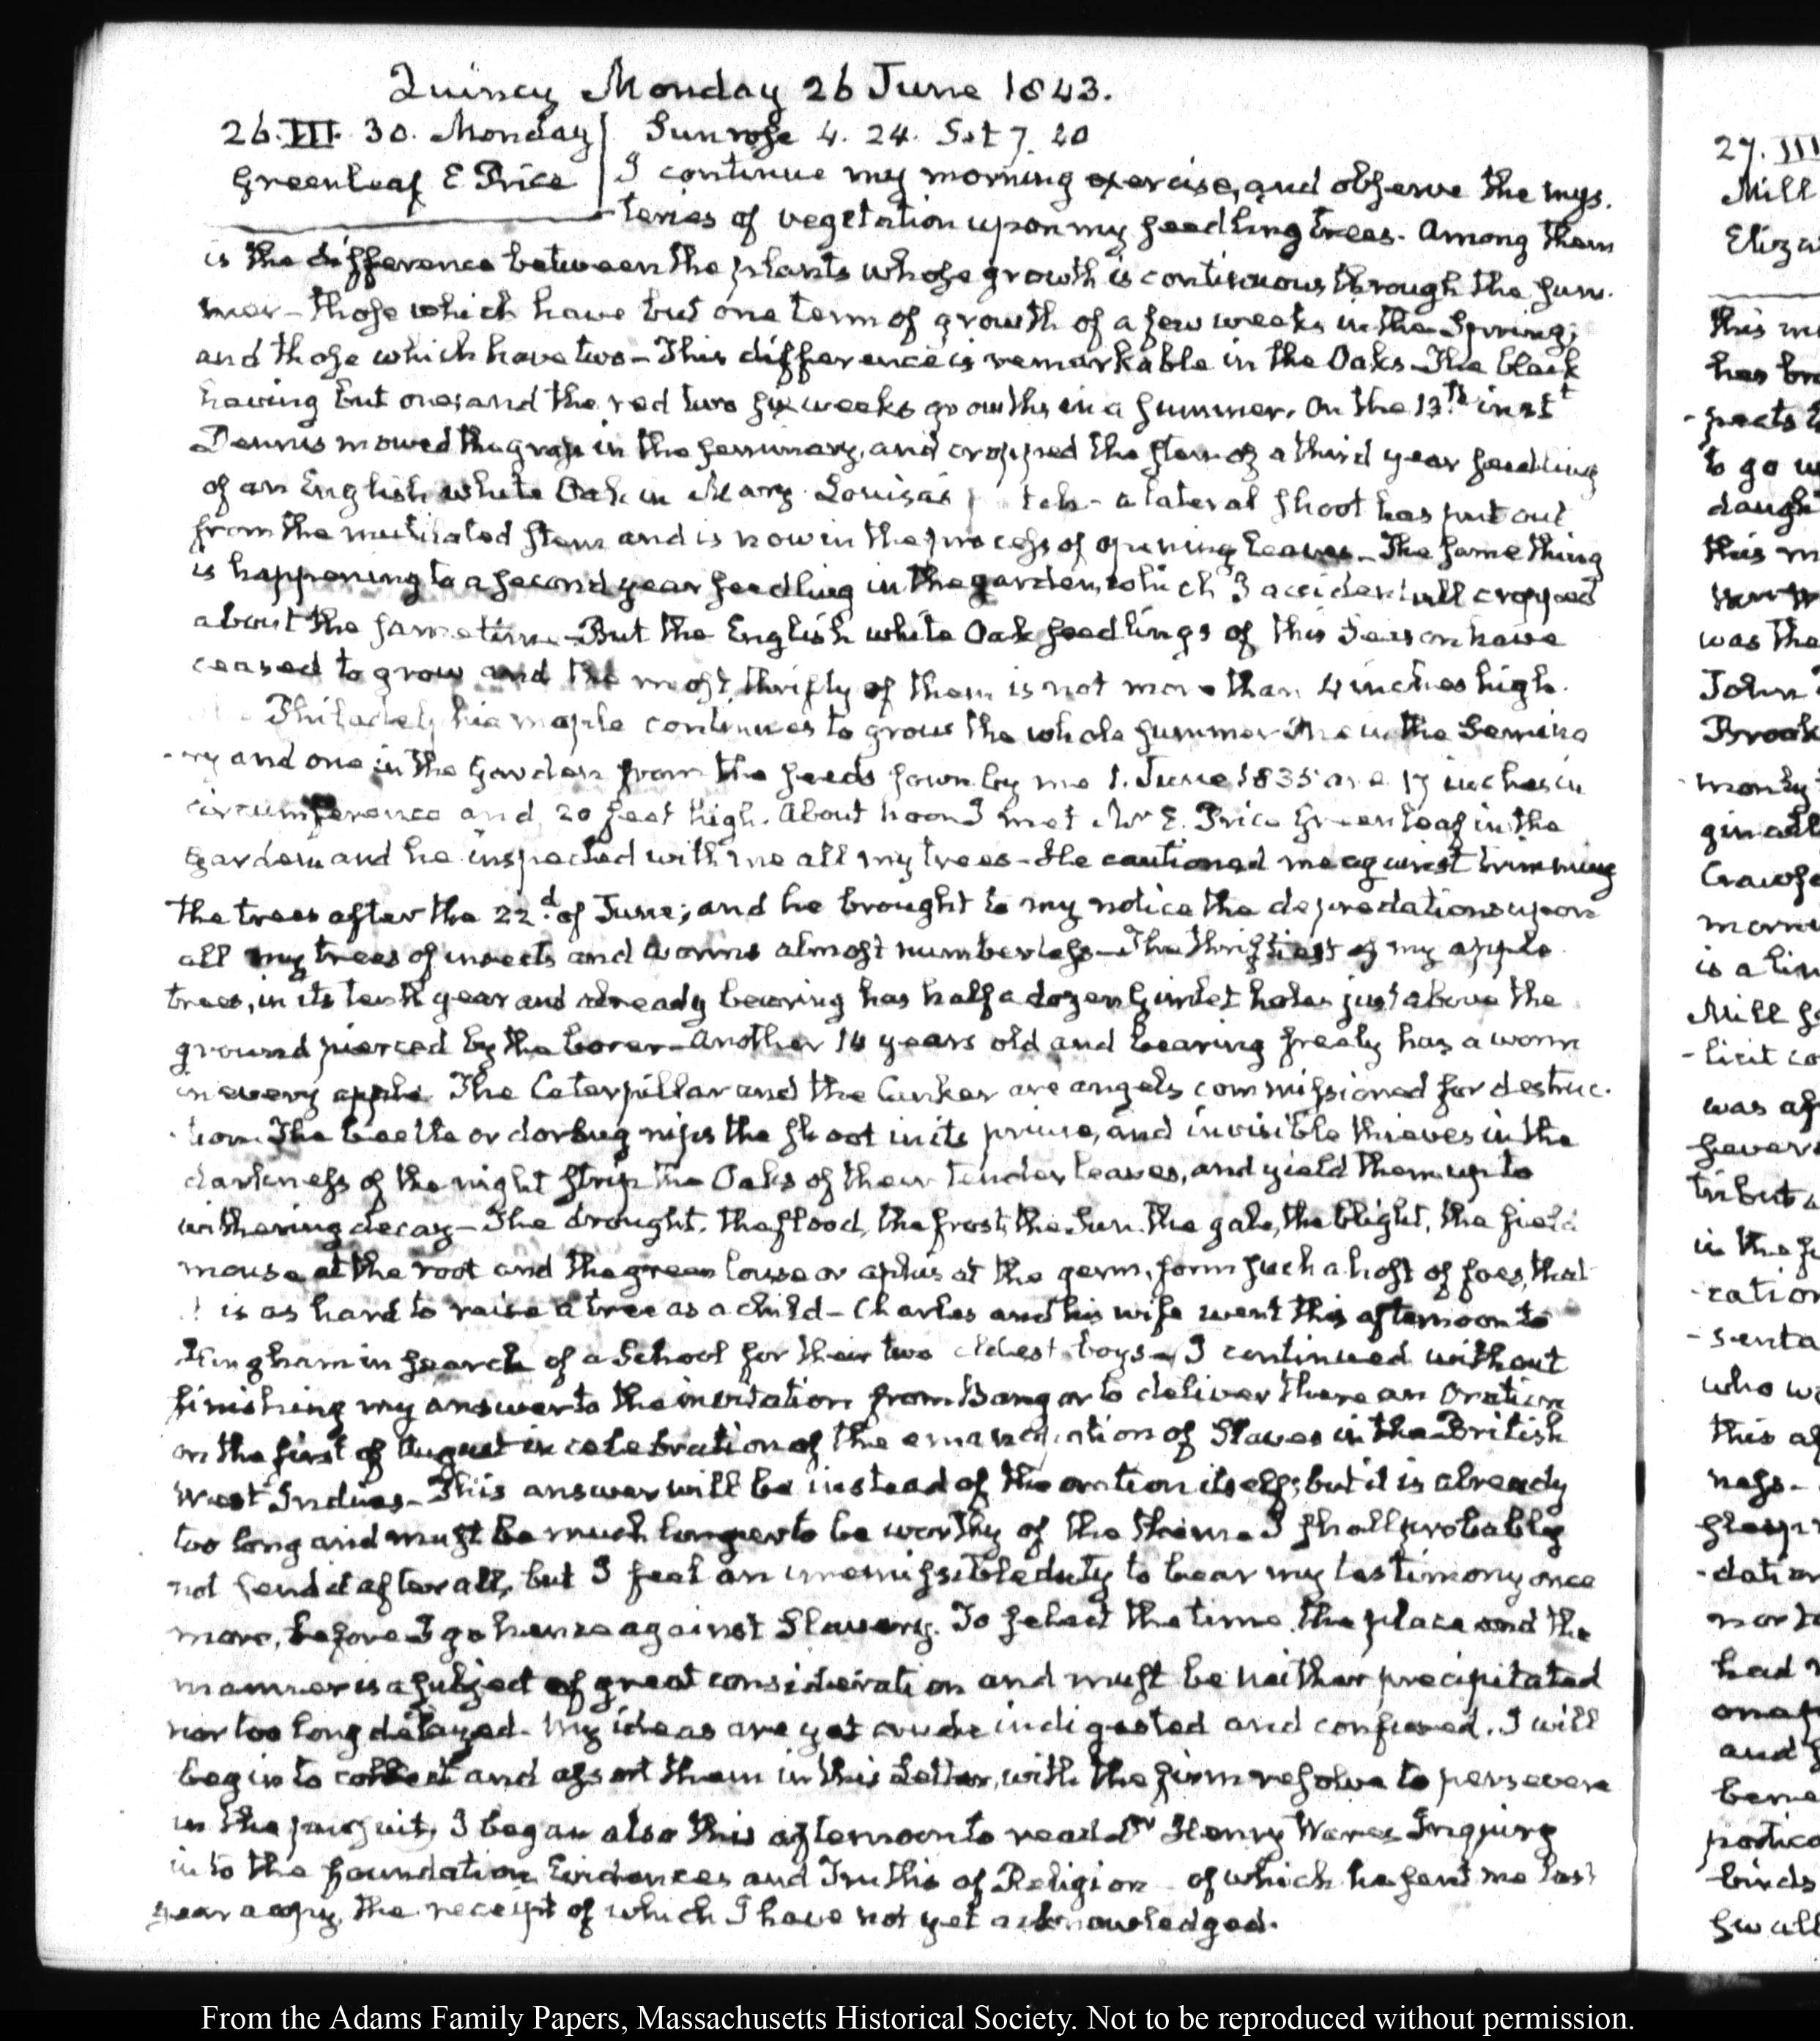 Quincy Monday 26 June 1843.
26. III. 30. Monday
Greenleaf E Price
Sunrose 4. 24. Set 7. 20
I continue my morning exercise, and observe the mys-
-teries of vegetation upon my seedling trees. Among them
is the difference between the plants whose growth is continuous through the sum-
mer - those which have but one term of growth of a few weeks in the Spring;
and those which have two - This difference is remarkable in the Oaks - The black
having but one, and the red two six weeks growths in a summer. On the 13.th inst.t
Dennis mowed the grass in the seminary, and cropped the stem of a third year seedling
of an English white Oak in Mary Louisa's - a lateral shoot has put out
from the mutilated stem and is now in the process of opening leaves - The same thing
is happening to a second year seedling in the garden, which I accidentally cropped
about the same time - But the English white Oak seedlings of this Season have
ceased to grow and the most thrifty of them is not more than 4 inches high.
Philadelphia maple continues to grow the whole summer One in the Semina
-ry and one in the Garden from the seeds sown by me 1. June 1835 are 17 inches in
circumference and 20 feet high. About noon I met Mr E. Price Greenleaf in the
garden and he inspected with me all my trees - He cautioned me against trimming
the trees after the 22.d of June; and he brought to my notice the depredations upon
all my trees of insects and worms almost numberless - The thriftiest of my apple
trees, in its tenth year and already bearing has half a dozen Gimlet holes just above the
ground pierced by the borer - Another 14 years old and bearing freely has a worm
in every apple. The Caterpillar and the Canker are angels commissioned for destruc-
-tion. The beetle or dorbug nips the shoot in its prime, and invisible thieves in the
darkness of the night strip the Oaks of their tender leaves, and yield them up to
withering decay - The drought, the flood, the frost, the Sun, the gale, the blight, the field
mouse at the root and the green louse or aphis at the germ, form such a host of foes, that
it is as hard to raise a tree as a child - Charles and his wife went this afternoon to
Hingham in search of a School for their two eldest boys - I continued without
finishing my answer to the invitation from Bangor to deliver there an Oration
on the first of August in celebration of the emancipation of Slaves in the British
West Indies - This answer will be instead of the oration itself; but it is already
too long and must be much longer to be worthy of the theme. I shall probably
not send it after all, but I feel an irremissible duty to bear my testimony once
more, before I go hence against Slavery. To select the time, the place and the
manner is a subject of great consideration and must be neither precipitated
nor too long delayed. My ideas are yet crude indigested and confused. I will
begin to collect and assort them in this Letter, with the firm resolve to persevere
in the pursuit, I began also this afternoon to read Dr Henry Wares Inquiry
into the foundation Evidences and Truths of Religion of which he sent me last
year a copy, the receipt of which I have not yet acknowledged.
27. III
Mill
this m
has br
to go
this m
was the
John
Brook
is a lin
Mill
was af
is the
who w
this af
had
and
birds
From the Adams Family Papers, Massachusetts Historical Society. Not to be reproduced without permission.